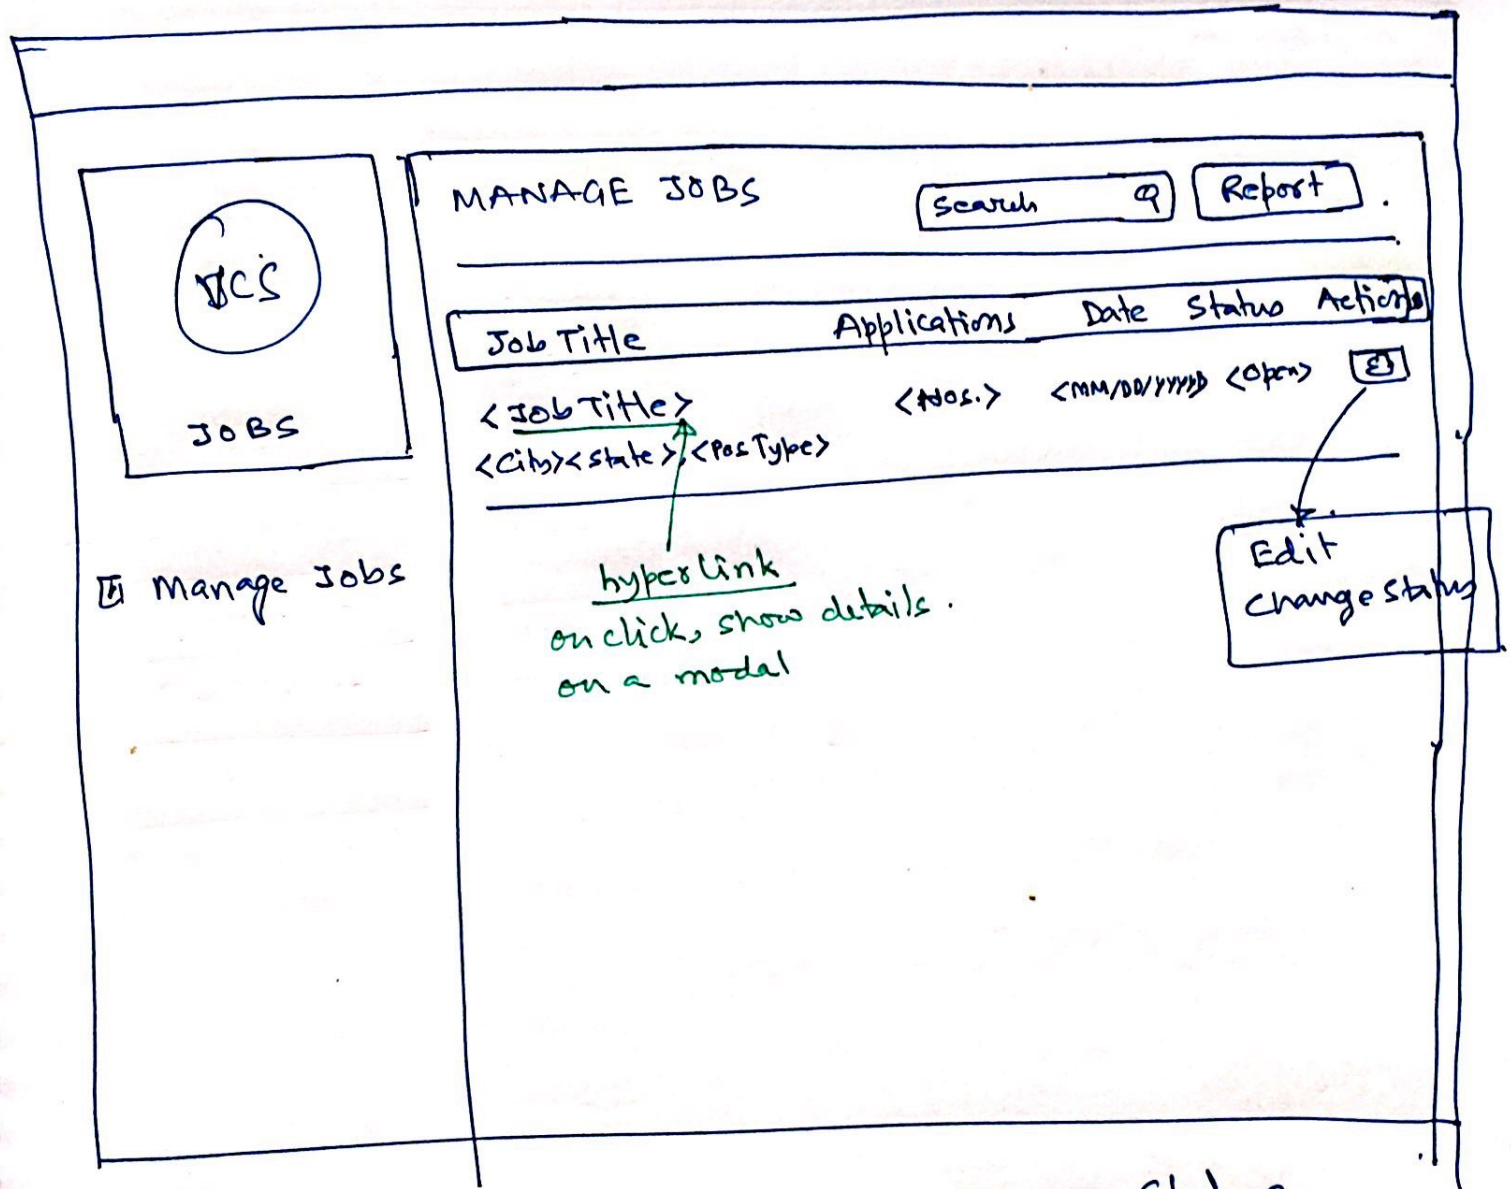 MANAGE JOBS
Search
Report
JOBS
Job Title Applications Date Status Actions
<Job Title> <Nos.> <MM/DD/YYYY> <Open>
<City><State>, <Pos Type>
Manage Jobs
hyperlink
on click, show details.
on a modal
Edit
Change Status